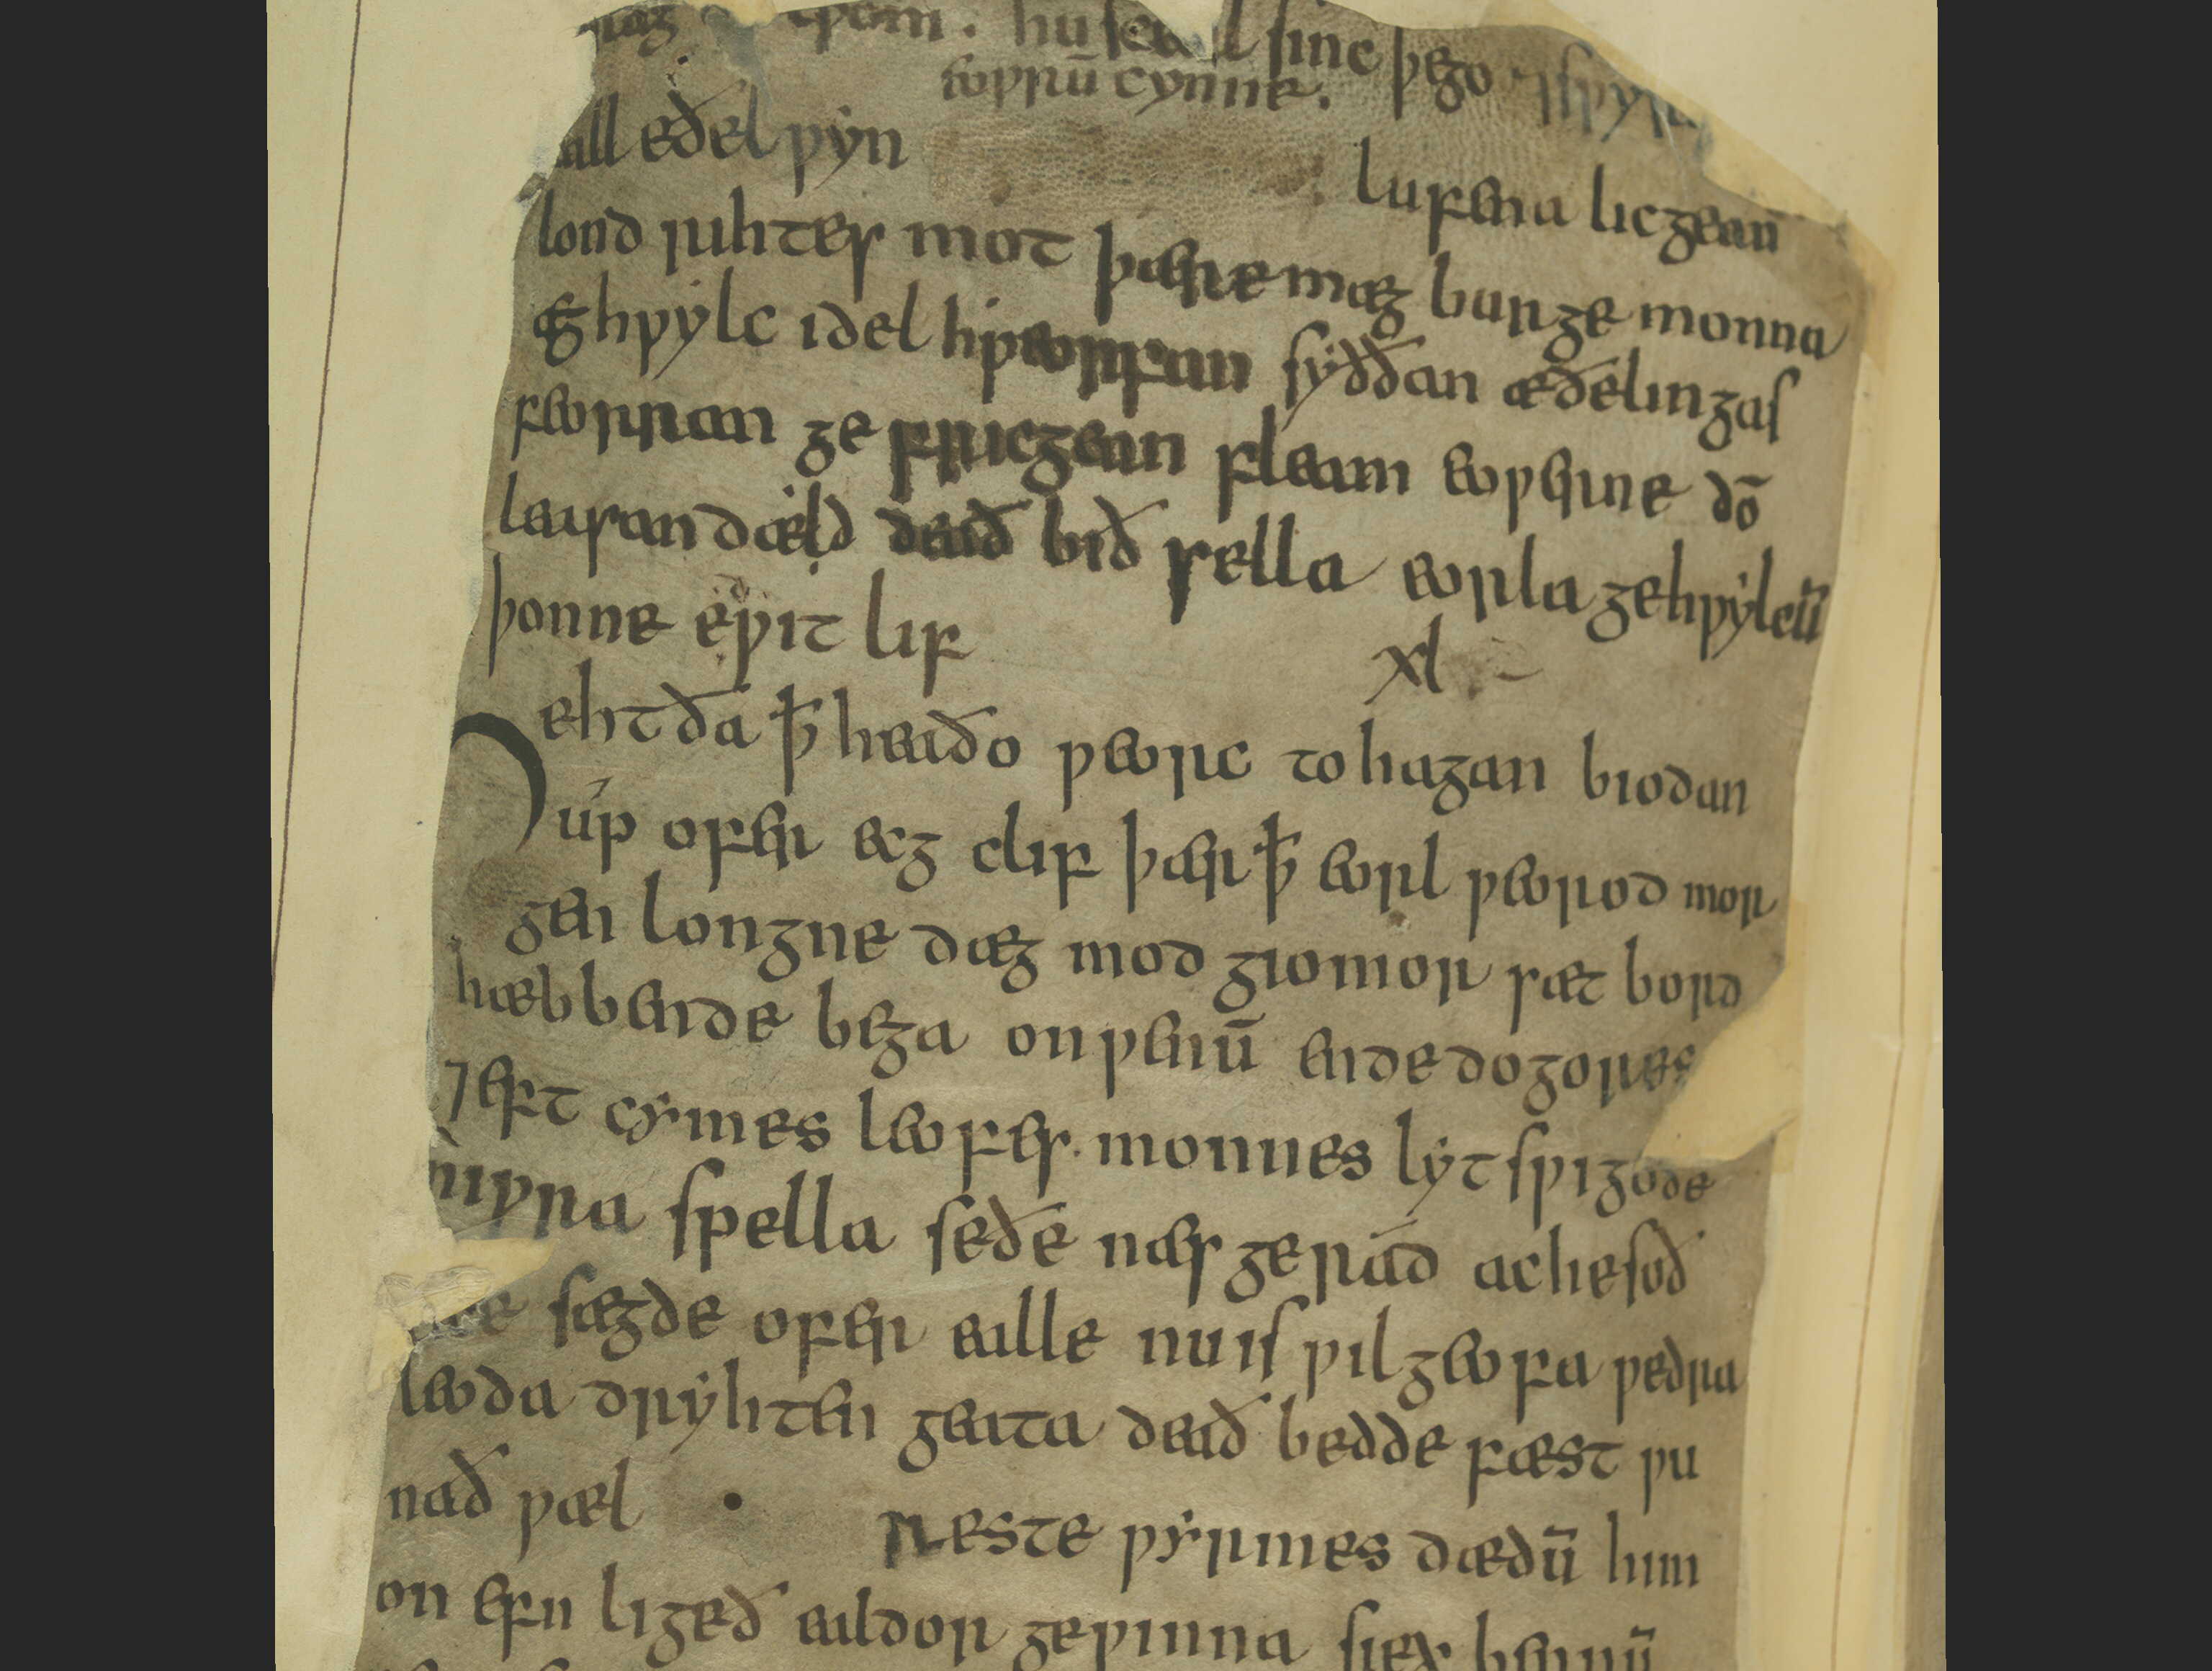 hu sceal sinc þego ⁊ sƿyrd
eoƿrū cynne.
eall eðel ƿyn lufen alicgean
lond rihtes mot þære mæg burge monna
æghƿylc idel hƿeorfan syððan æðelingas
feorran ge fricgean fleam eoƿerne dō
leasan dæd deað bið sella eorla gehƿylcū
þonne edƿit lif
xl
Heht ða ꝥ heaðo ƿeorc to hagan biodan
úp ofer ecg clif þær ꝥ eorl ƿeorod mor
gen longne dæg mod giomor sæt bord
hæbbende bega on ƿenū ende dogores
⁊ eft cymes leofes monnes lyt sƿigode
niƿra spella seðe næs gerád ac he soð
lice sægde ofer ealle nu is ƿil geofa ƿedra
leoda dryhten geata deað bedde fæst ƿu
nað ƿæl reste ƿyrmes dædū him
on efn ligeð ealdor geƿinna siex bennū